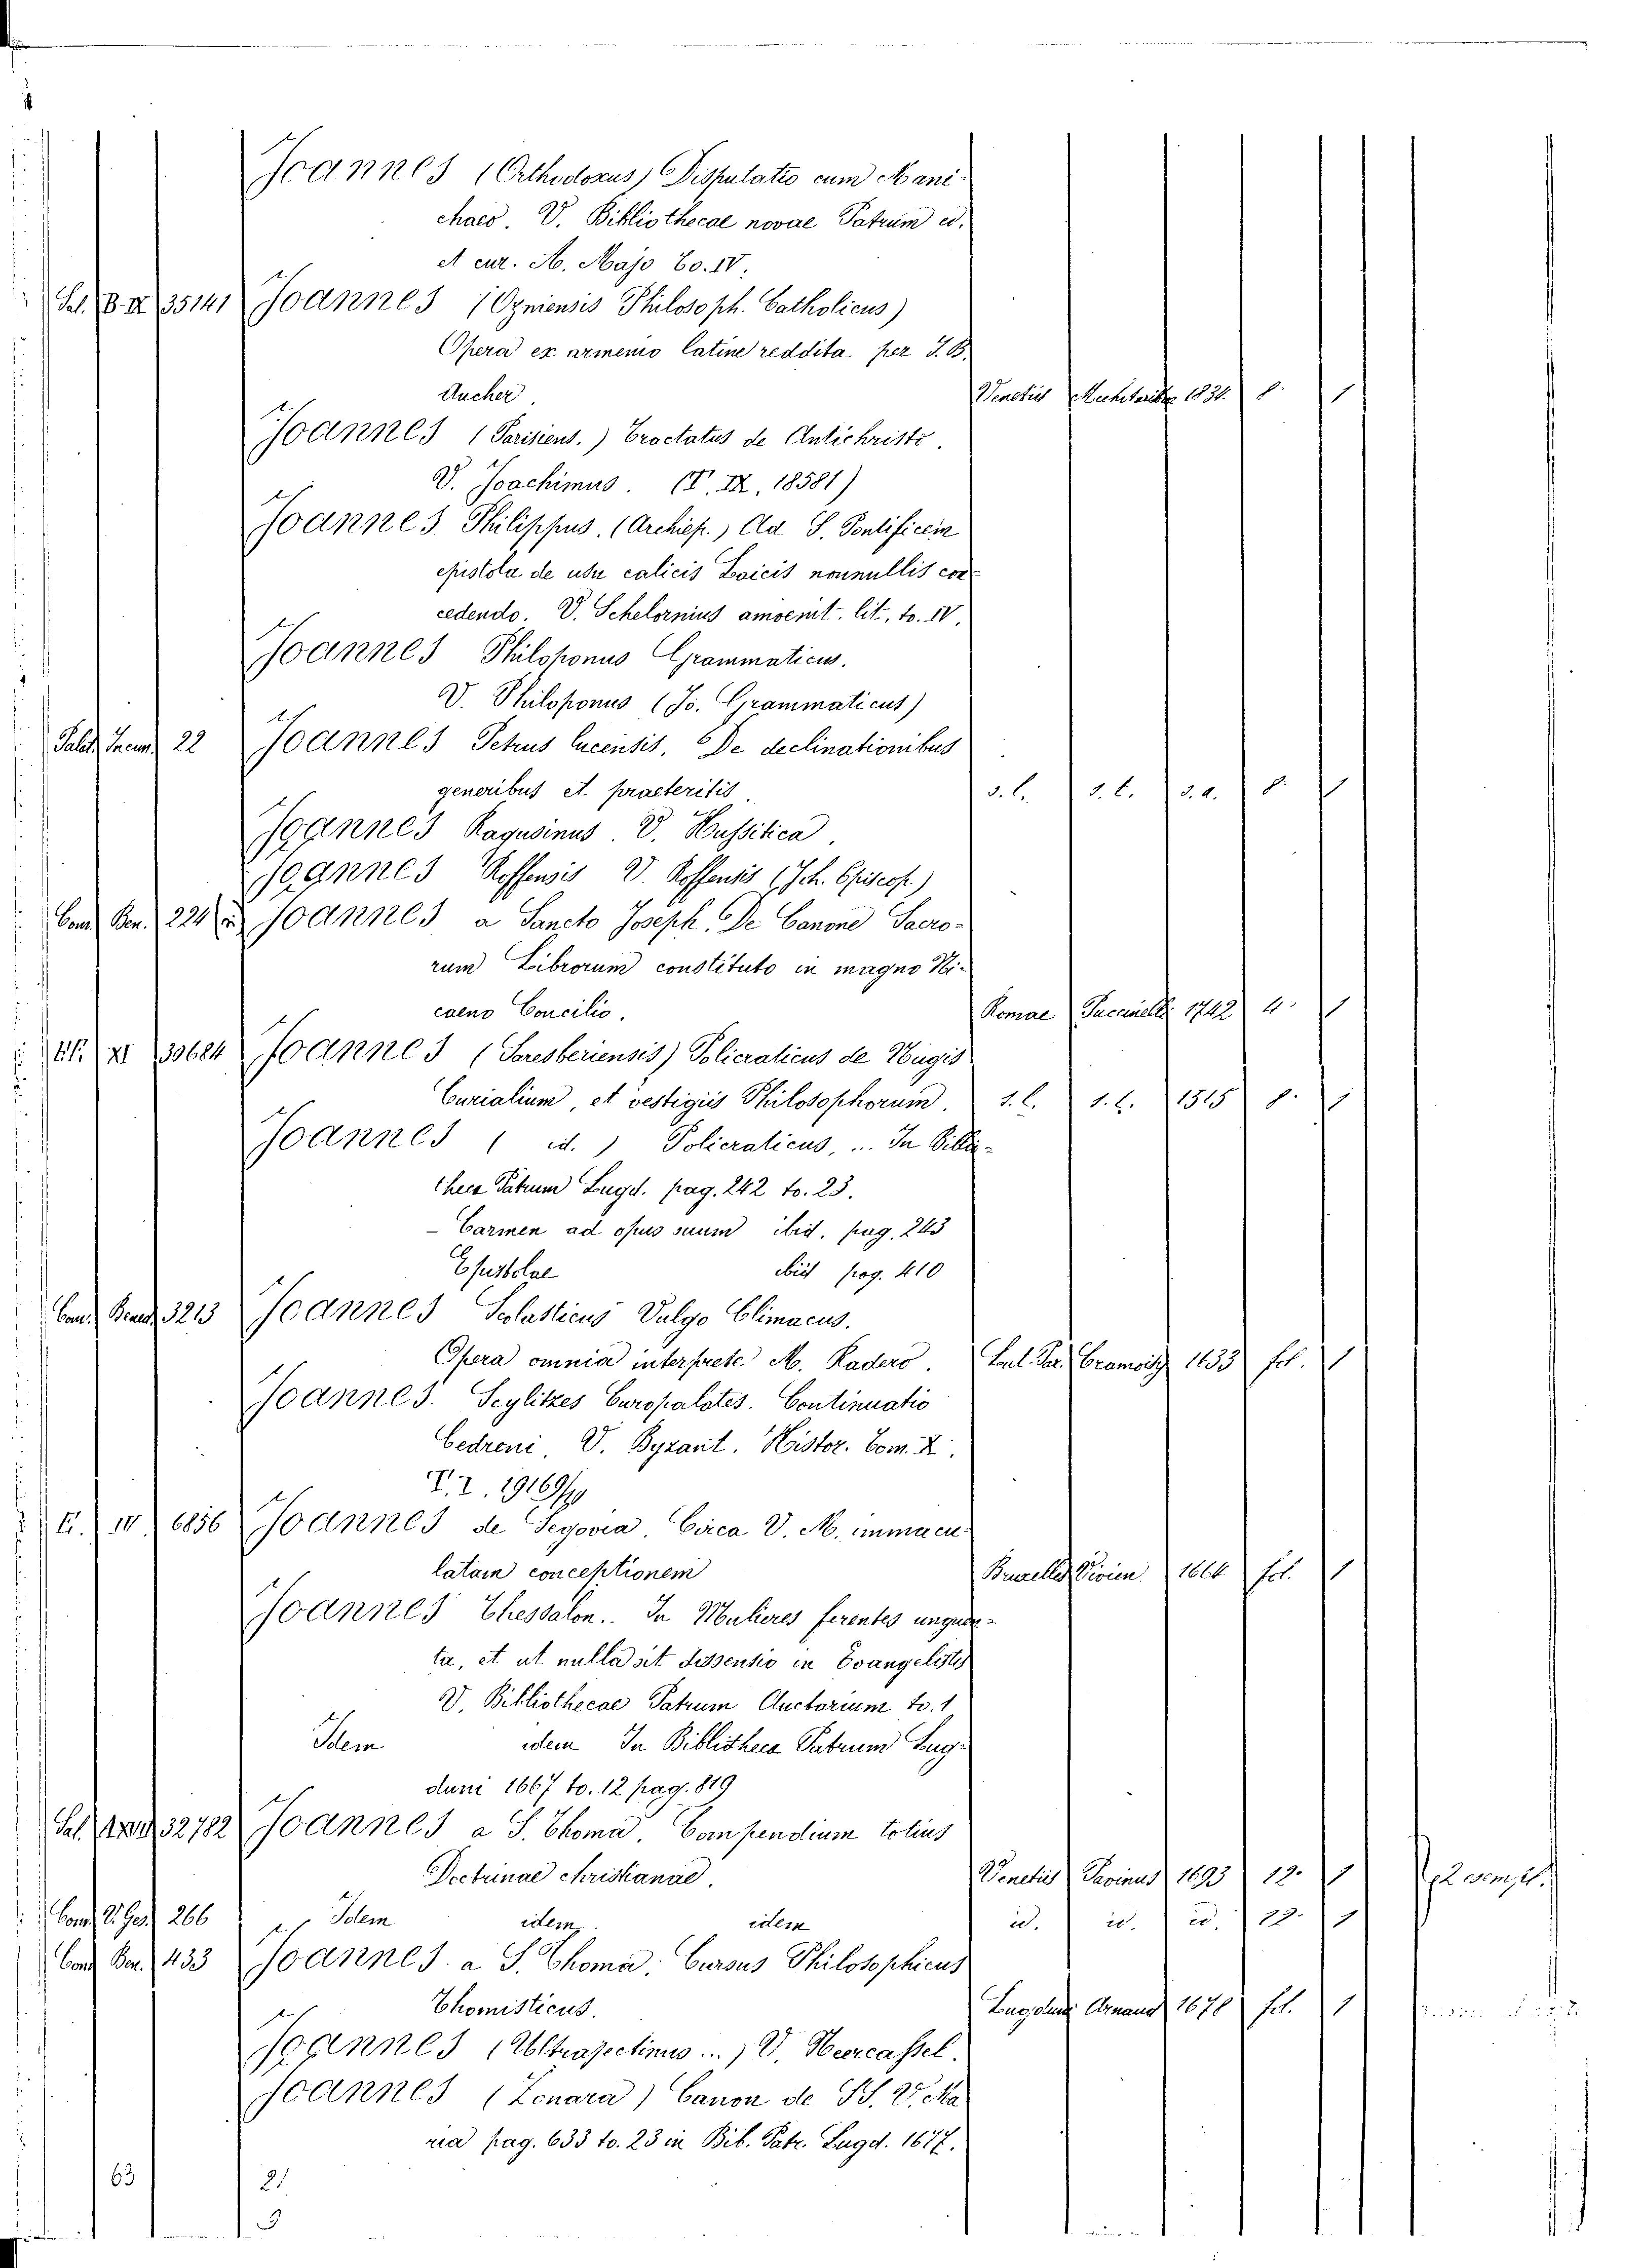 Joannes (Orthodoxus) Disputatio cum Mani-
chaeo. V. Bibliothecae novae Patrum ed.
A cur. A. Majo to. IV.
Sal. B. IX 35141 Joannes (Ozniensis Philosoph. Catholicus)
Opera ex armenio latine reddita per J. B.
Aucher. Venetiis Mechitaristae 1834 8. 1
Joannes (Parisiens.) Tractatus de Antichristo.
V. Joachimus. (T. IX. 18581)
Joannes Philippus. (Archiep.) Ad S. Pontificem
epistola de usu calicis Laicis nonnullis con-
cedendo. V. Schelornius amoenit. lit. to. IV.
Joannes Philoponus Grammaticus.
V. Philoponus (Jo. Grammaticus)
Palat. Incun. 22 Joannes Petrus Lucensis. De declinationibus
generibus et praeteritis. s. l. s. t. s. a. 8. 1
Joannes Ragusinus. V. Hussitica.
Joannes Roffensis V. Roffensis (Joh. Episcop.)
Com. Ben. 224 Joannes a Sancto Joseph. De Canone Sacro-
rum Librorum constituto in magno Ni-
caeno Concilio. Romae Puccinelli 1742 4. 1
XI 30684 Joannes (Saresberiensis) Policraticus de Nugis
Curialium, et vestigiis Philosophorum. s. l. s. t. 1515 8. 1
Joannes ( id. ) Policraticus, ... In Biblio-
theca Patrum Lugd. pag. 242 to. 23.
- Carmen ad opus suum ibid. pag. 243
Epistolae ibid pag. 410
Com. Bened. 3213 Joannes Scolasticus Vulgo Climacus.
Opera omnia interprete M. Radero. Lut. Par. Cramoisy 1633 fol. 1
Joannes. Scylitzes Curopalates. Continuatio
Cedreni. V. Byzant. Histor. Tom. X.
T. I. 19169/49
E. IV 6856 Joannes de Segovia. Circa V. M. immacu-
latam conceptionem Bruxelles Vivien. 1664 fol. 1
Joannes Thessalon.. In Mulieres ferentes unguen-
ta, et ut nulla sit dissensio in Evangelistis
V. Bibliothecae Patrum Auctarium to. 1
Idem idem In Bibliotheca Patrum Lug-
duni 1667 to. 12 pag. 819
Sal. 32782 Joannes a S. Thoma. Compendium totius
Doctrinae christianae. Venetiis Pavinus 1693 12. 1 2 exempl.
Com. V. Ges. 266 Idem idem idem id. id. id. 12. 1
Com. Ben. 433 Joannes a S. Thoma. Cursus Philosophicus
Thomisticus. Lugduni Arnaud 1678 fol. 1
Joannes (Ultrajectinus ...) V. Neercassel.
Joannes (Zonara) Canon de SS. V. Ma-
ria pag. 633 to. 23 in Bib. Patr. Lugd. 1677.
63 21
3